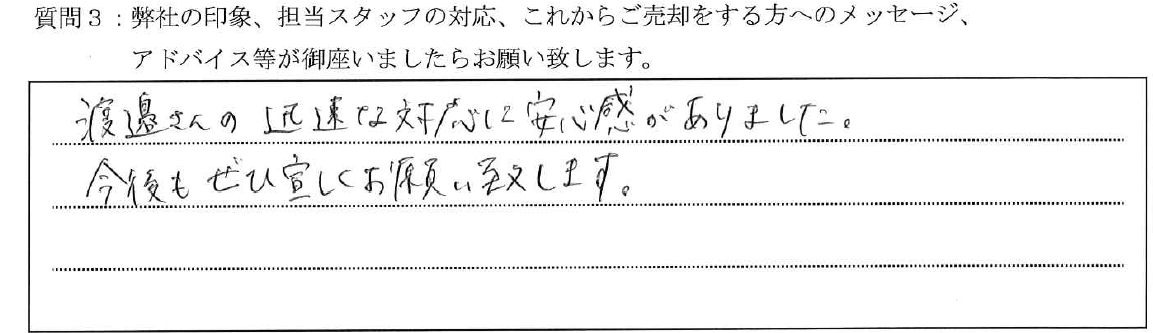 質問3：弊社の印象、担当スタッフの対応、これからご売却をする方へのメッセージ、
アドバイス等が御座いましたらお願い致します。
渡邉さんの迅速な対応に安心感がありました。
今後もぜひ宜しくお願い致します。